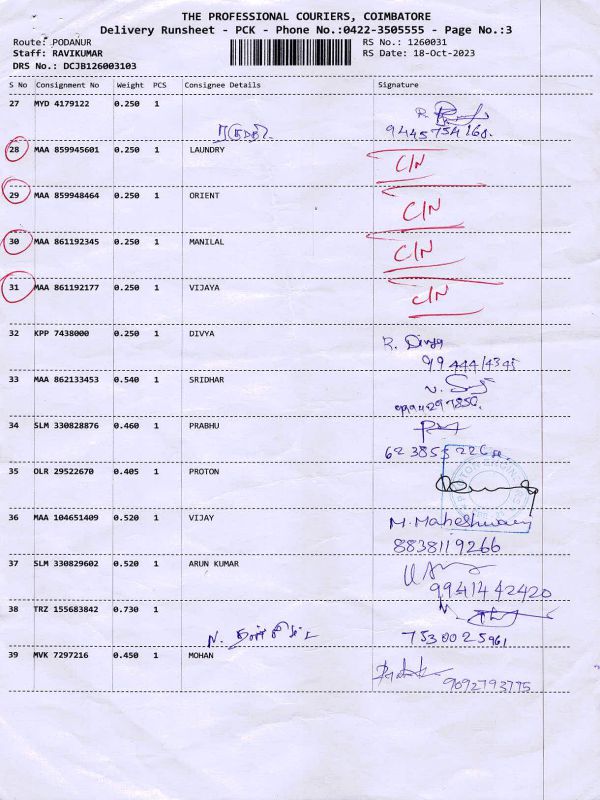 THE PROFESSIONAL COURIERS, COIMBATORE
Delivery Runsheet - PCK - Phone No.:0422-3505555 - Page No.:3
Route: PODANUR RS No.: 1260031
Staff: RAVIKUMAR RS Date: 18-Oct-2023
DRS No.: DCJB126003103
S No Consignment No Weight PCS Consignee Details Signature
27 MYD 4179122 0.250 1
R.
9445754168.
28 MAA 859945601 0.250 1 LAUNDRY C/N
29 MAA 859948464 0.250 1 ORIENT C/N
30 MAA 861192345 0.250 1 MANILAL C/N
31 MAA 861192177 0.250 1 VIJAYA C/N
32 KPP 7438000 0.250 1 DIVYA R. Divya
33 MAA 862133453 0.540 1 SRIDHAR
34 SLM 330828876 0.460 1 PRABHU
35 OLR 29522670 0.405 1 PROTON
36 MAA 104651409 0.520 1 VIJAY M. Maheshwary
8838119266
37 SLM 330829602 0.520 1 ARUN KUMAR
9941442420
38 TRZ 155683842 0.730 1
N.
7530025961
39 MVK 7297216 0.450 1 MOHAN
9092793775